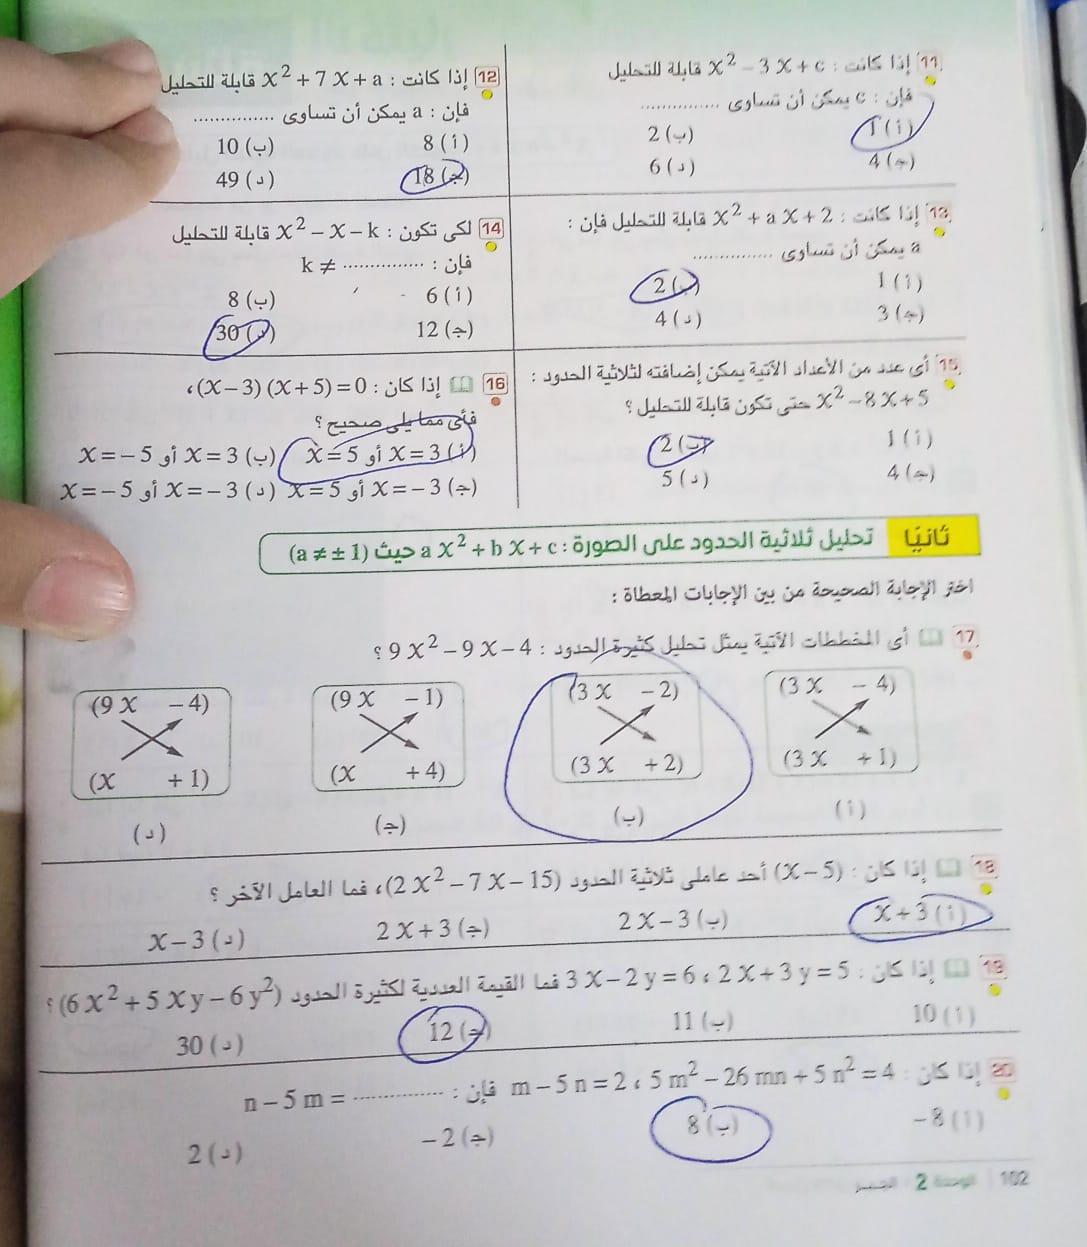 11 إذا كانت : x² − 3 x + c قابلة للتحليل
فإن : c يمكن أن تساوى ..............
(أ) 1 (ب) 2
(جـ) 4 (د) 6
12 إذا كانت : x² + 7 x + a قابلة للتحليل
فإن : a يمكن أن تساوى ..............
(أ) 8 (ب) 10
(جـ) 18 (د) 49
13 إذا كانت : x² + a x + 2 قابلة للتحليل فإن :
a يمكن أن تساوى ..............
(أ) 1 (ب) 2
(جـ) 3 (د) 4
14 لكى تكون : x² − x − k قابلة للتحليل
فإن : k ≠ ..............
(أ) 6 (ب) 8
(جـ) 12 (د) 30
15 أى عدد من الأعداد الآتية يمكن إضافته لثلاثية الحدود :
x² − 8 x + 5 حتى تكون قابلة للتحليل ؟
(أ) 1 (ب) 2
(جـ) 4 (د) 5
16 إذا كان : (x − 3) (x + 5) = 0 ،
فأى مما يلى صحيح ؟
(أ) x = 3 أو x = 5 (ب) x = 3 أو x = − 5
(جـ) x = − 3 أو x = 5 (د) x = − 3 أو x = − 5
ثانيًا تحليل ثلاثية الحدود على الصورة : a x² + b x + c حيث (a ≠ ± 1)
اختر الإجابة الصحيحة من بين الإجابات المعطاة :
17 أى المخططات الآتية يمثل تحليل كثيرة الحدود : 9 x² − 9 x − 4 ؟
(3 x − 4) (3 x − 2) (9 x − 1) (9 x − 4)
(3 x + 1) (3 x + 2) (x + 4) (x + 1)
(أ) (ب) (جـ) (د)
18 إذا كان : (x − 5) أحد عاملى ثلاثية الحدود (2 x² − 7 x − 15) ، فما العامل الآخر ؟
(أ) x + 3 (ب) 2 x − 3 (جـ) 2 x + 3 (د) x − 3
19 إذا كان : 2 x + 3 y = 5 ، 3 x − 2 y = 6 فما القيمة العددية لكثيرة الحدود (6 x² + 5 x y − 6 y²) ؟
(أ) 10 (ب) 11 (جـ) 12 (د) 30
20 إذا كان : 5 m² − 26 mn + 5 n² = 4 ، m − 5 n = 2 فإن : n − 5 m = ..............
(أ) − 8 (ب) 8 (جـ) − 2 (د) 2
102 الوحدة 2